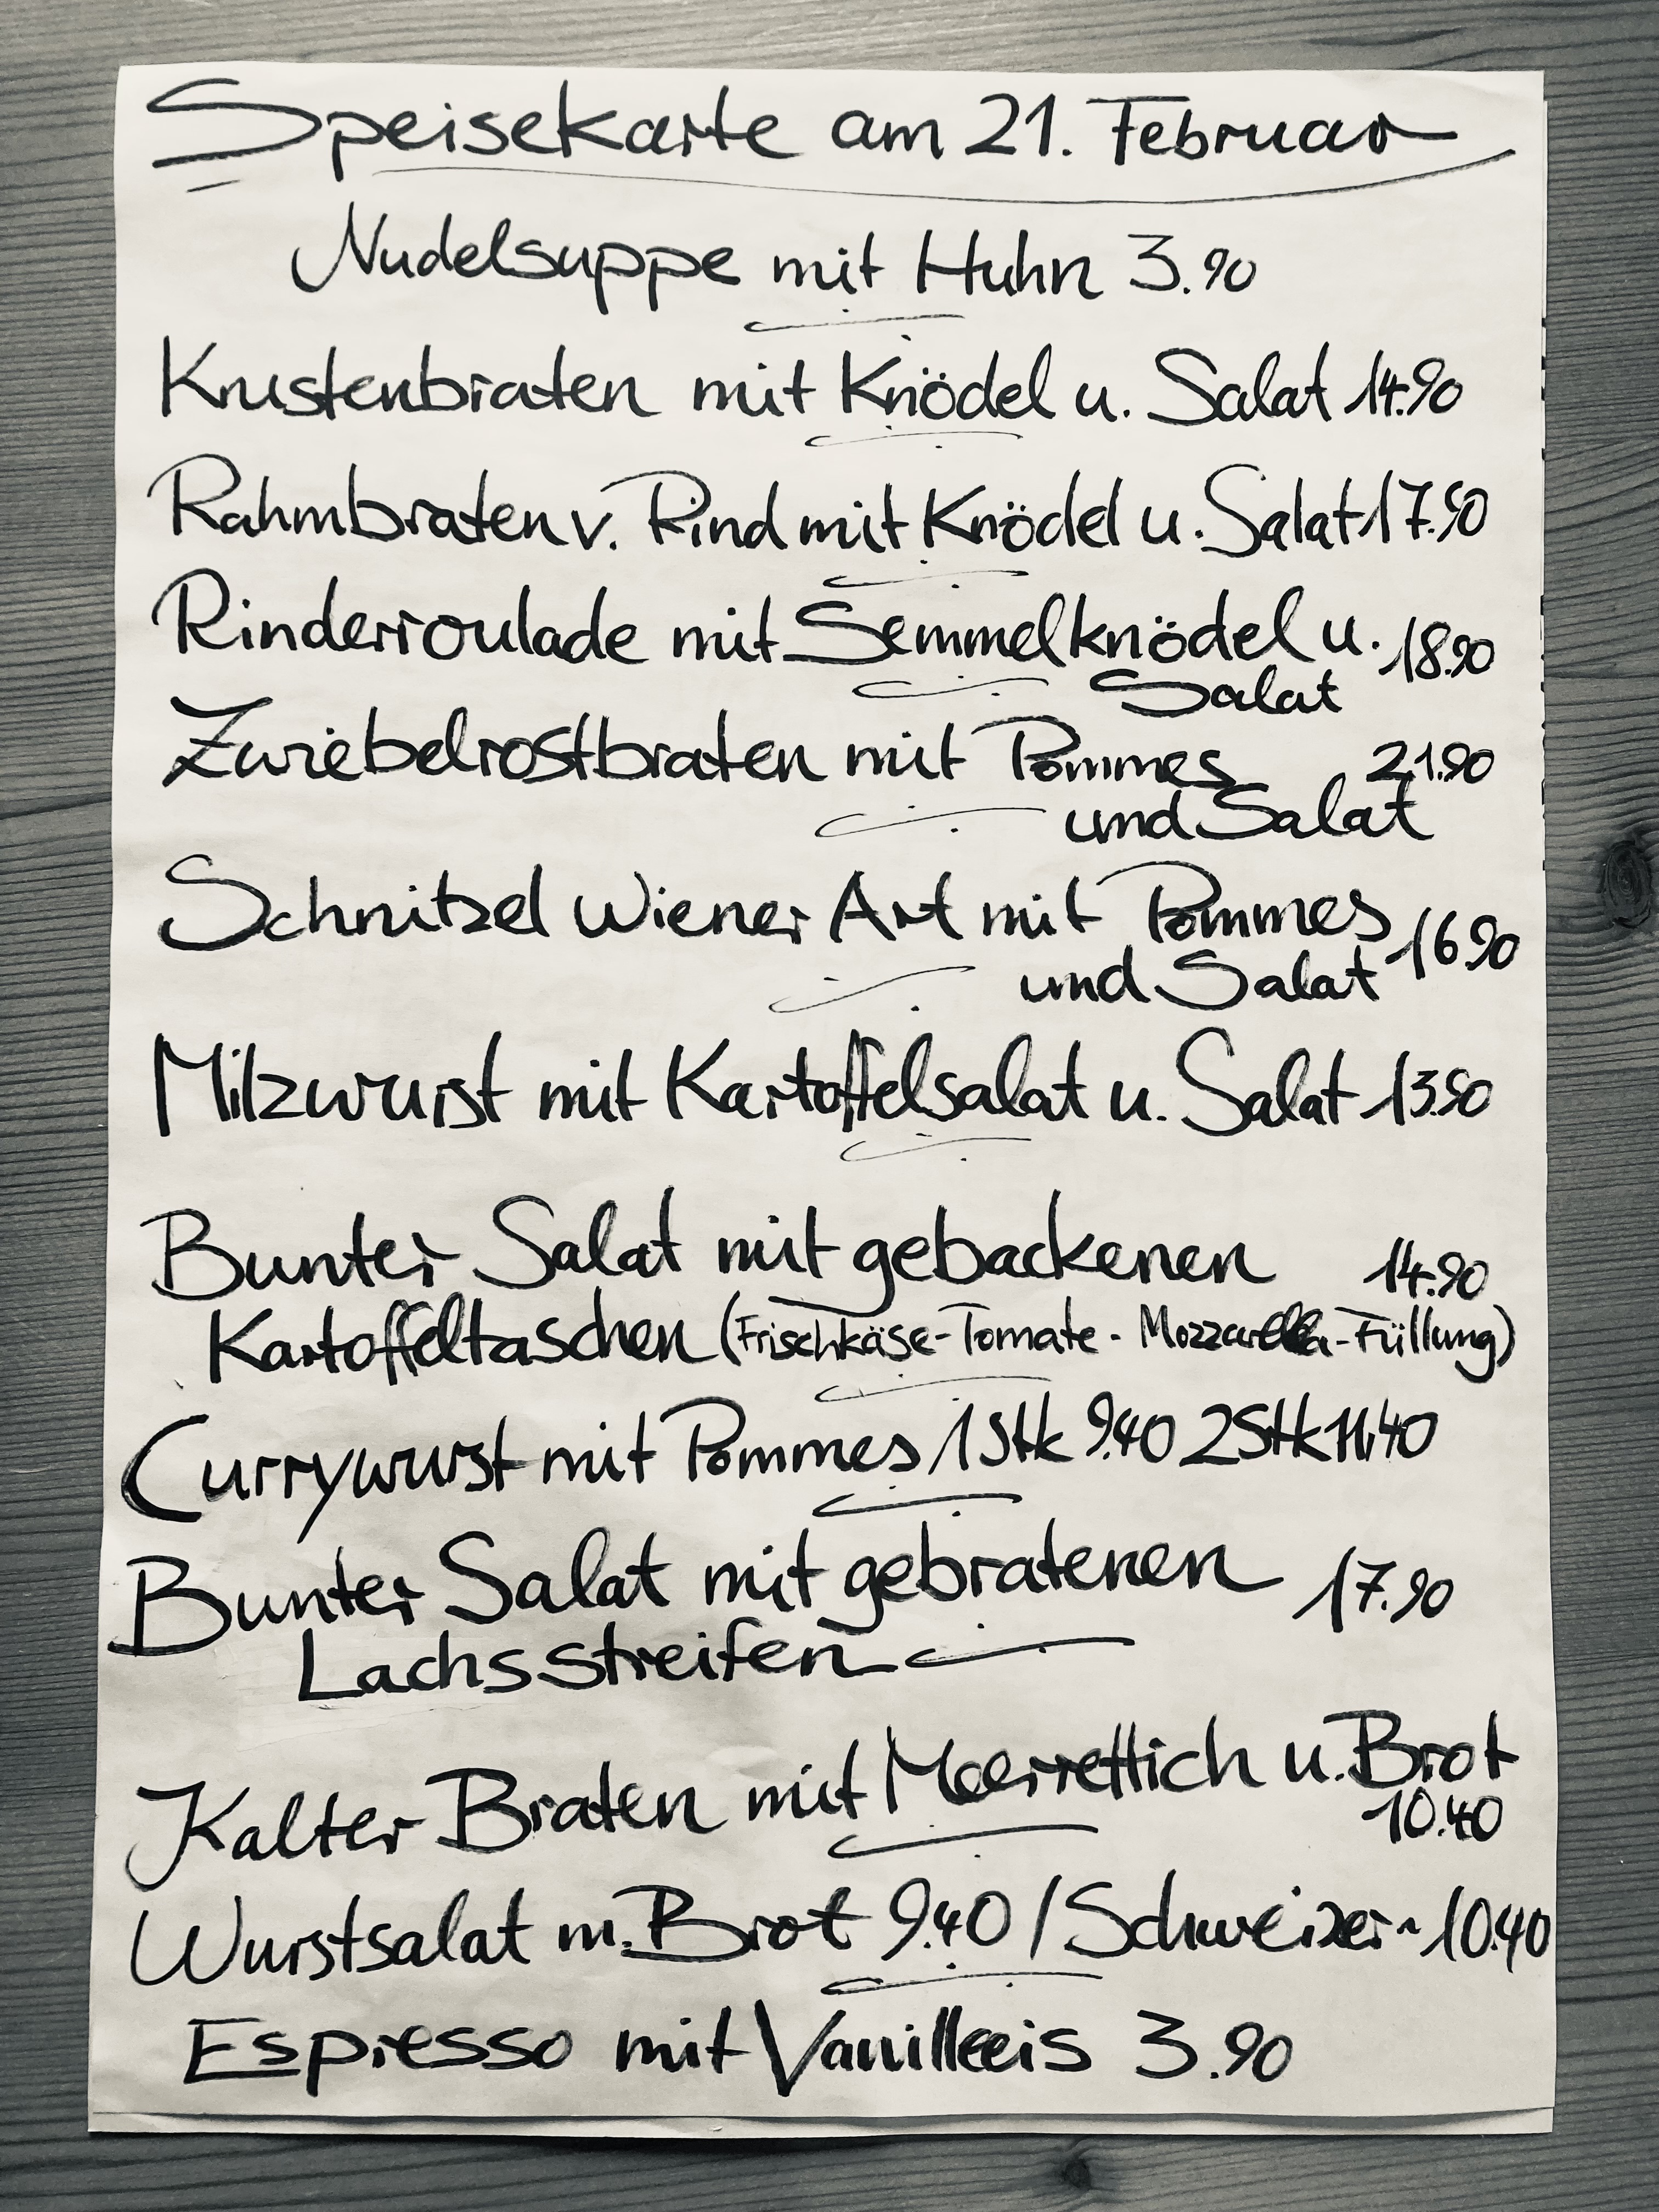 Speisekarte am 21. Februar
Nudelsuppe mit Huhn 3.90
Krustenbraten mit Knödel u. Salat 14.90
Rahmbraten v. Rind mit Knödel u. Salat 17.90
Rinderroulade mit Semmelknödel u. 18.90
Salat
Zwiebelrostbraten mit Pommes 21.90
und Salat
Schnitzel Wiener Art mit Pommes 16.90
und Salat
Milzwurst mit Kartoffelsalat u. Salat 13.90
Bunter Salat mit gebackenen 14.90
Kartoffeltaschen (Frischkäse-Tomate-Mozzarella-Füllung)
Currywurst mit Pommes 1 Stk 9.40 2 Stk 11.40
Bunter Salat mit gebratenen 17.90
Lachsstreifen
Kalter Braten mit Meerrettich u. Brot
10.40
Wurstsalat m. Brot 9.40 / Schweizer ~ 10.40
Espresso mit Vanilleeis 3.90